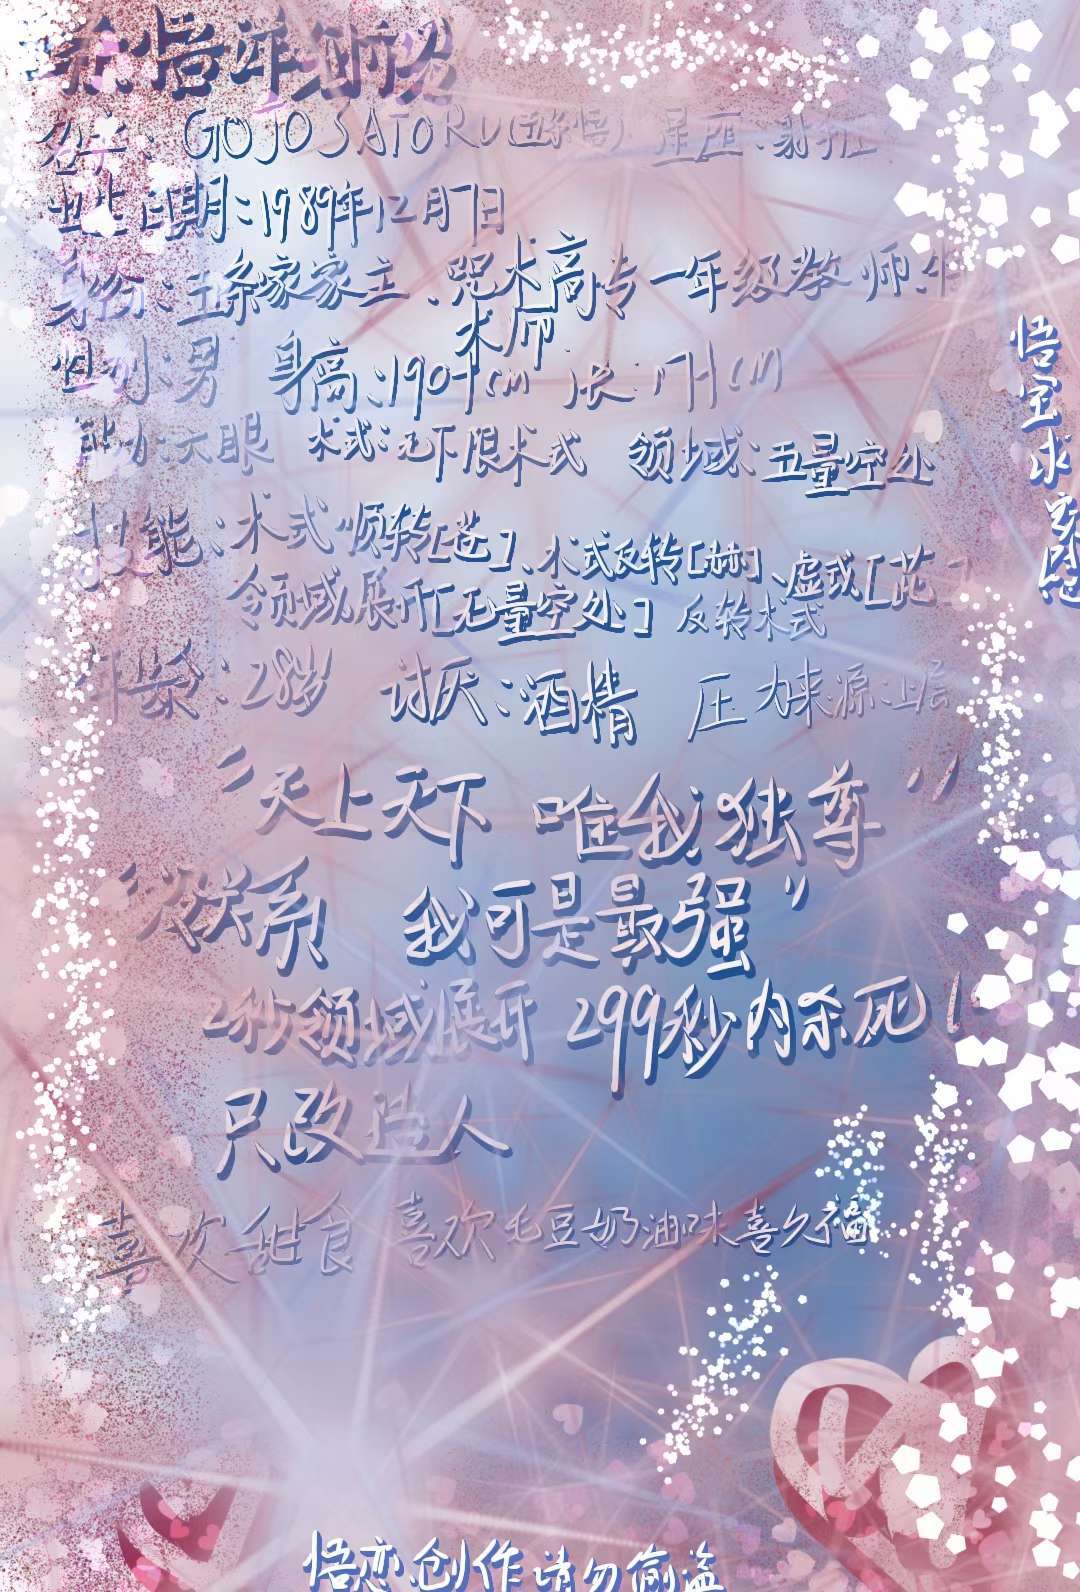 名字：GOJO SATORU(五条悟) 星座：射手座
出生日期：1989年12月7日
身份：五条家家主、咒术高专一年级教师、
术师
性别：男 身高：190+cm 腿长：171cm
能力：六眼 术式：无下限术式 领域：五量空处
技能：术式顺转[苍]、术式反转[赫]、虚式[茈]
领域展开[无量空处] 反转术式
年龄：28岁 讨厌：酒精 压力来源：上层
“天上天下 唯我独尊”
“没关系 我可是最强”
2秒领域展开 299秒内杀死
只改造人
喜欢甜食 喜欢毛豆奶油味喜久福
悟宝求
悟恋创作请勿偷盗